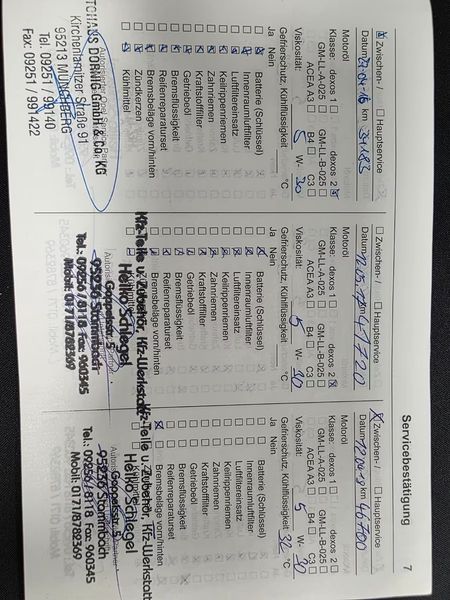 Servicebestätigung
7
Zwischen- / Hauptservice
Datum km 34183
Motoröl
Klasse: dexos 1 dexos 2
GM-LL-A-025 GM-LL-B-025
ACEA A3 B4 C3
Viskosität: 5 W- 30
Gefrierschutz, Kühlflüssigkeit °C
Ja Nein
Batterie (Schlüssel)
Innenraumluftfilter
Luftfiltereinsatz
Keilrippenriemen
Zahnriemen
Kraftstoffilter
Getriebeöl
Bremsflüssigkeit
Reifenreparaturset
Bremsbeläge vorn/hinten
Zündkerzen
Kühlmittel
DORNIG GmbH & Co. KG
Kirchenlamitzer Straße 91
95213 MÜNCHBERG
Tel. 09251 / 991140
Fax: 09251 / 991422
Zwischen- / Hauptservice
Datum km 41720
Motoröl
Klasse: dexos 1 dexos 2
GM-LL-A-025 GM-LL-B-025
ACEA A3 B4 C3
Viskosität: 5 W- 30
Gefrierschutz, Kühlflüssigkeit °C
Ja Nein
Batterie (Schlüssel)
Innenraumluftfilter
Luftfiltereinsatz
Keilrippenriemen
Zahnriemen
Kraftstoffilter
Getriebeöl
Bremsflüssigkeit
Reifenreparaturset
Bremsbeläge vorn/hinten
Kfz-Teile u. Zubehör, Kfz-Werkstatt
Heiko Schlegel
Goppelsstr. 5
95236 Stammbach
Tel.: 09256 / 8118 Fax 960345
Mobil: 0171/8782369
Zwischen- / Hauptservice
Datum km 46700
Motoröl
Klasse: dexos 1 dexos 2
GM-LL-A-025 GM-LL-B-025
ACEA A3 B4 C3
Viskosität: 5 W- 30
Gefrierschutz, Kühlflüssigkeit 32 °C
Ja Nein
Batterie (Schlüssel)
Innenraumluftfilter
Luftfiltereinsatz
Keilrippenriemen
Zahnriemen
Kraftstoffilter
Getriebeöl
Bremsflüssigkeit
Reifenreparaturset
Bremsbeläge vorn/hinten
Kfz-Teile u. Zubehör, Kfz-Werkstatt
Heiko Schlegel
Goppelsstr. 5
95236 Stammbach
Tel.: 09256 / 8118 Fax 960345
Mobil: 0171/8782369